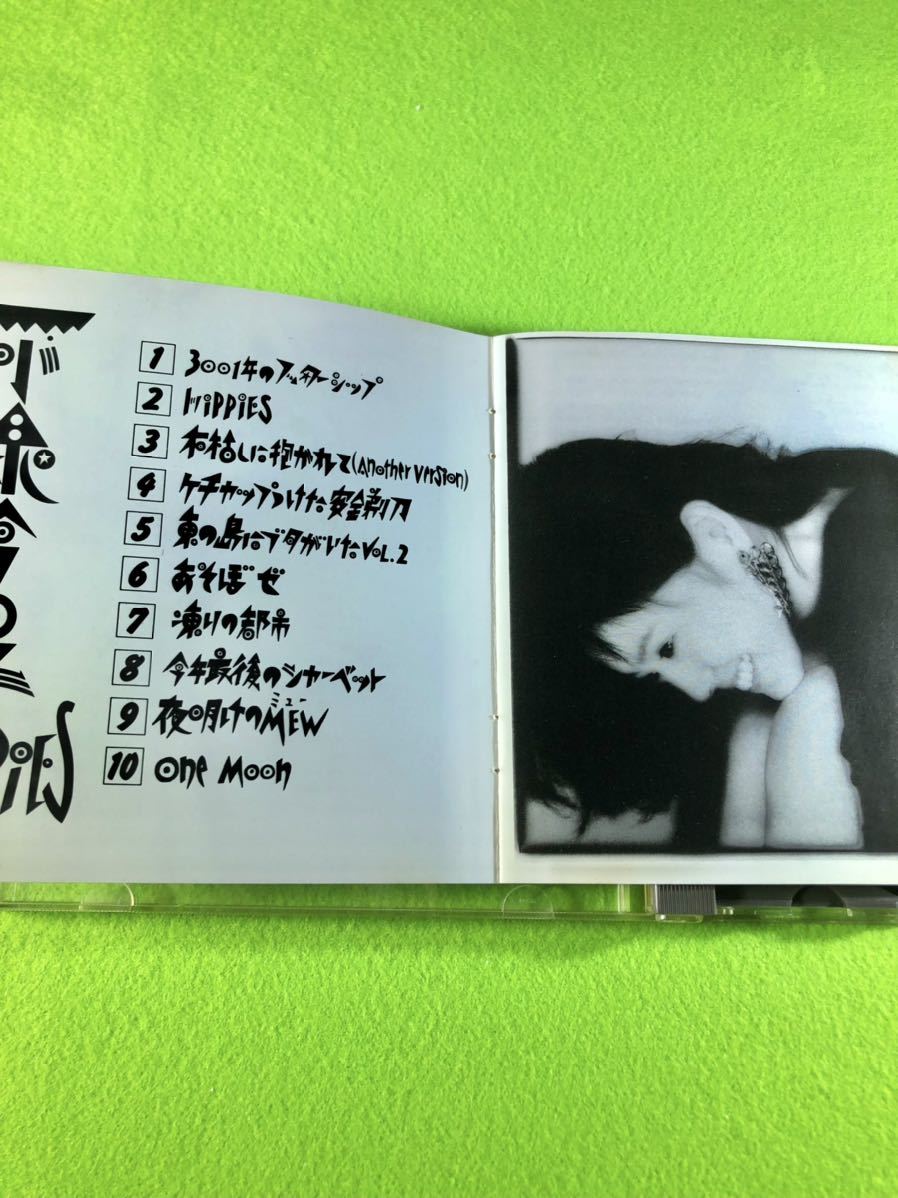 1 3001年のスターシップ
2 HIPPIES
3 木枯しに抱かれて (Another version)
4 ケチャップつけた安全剃刀
5 東の島にブタがいた VOL.2
6 あそぼぜ
7 凍りの都市
8 今年最後のシャーベット
9 夜明けのMEW ミュー
10 One Moon
PIES